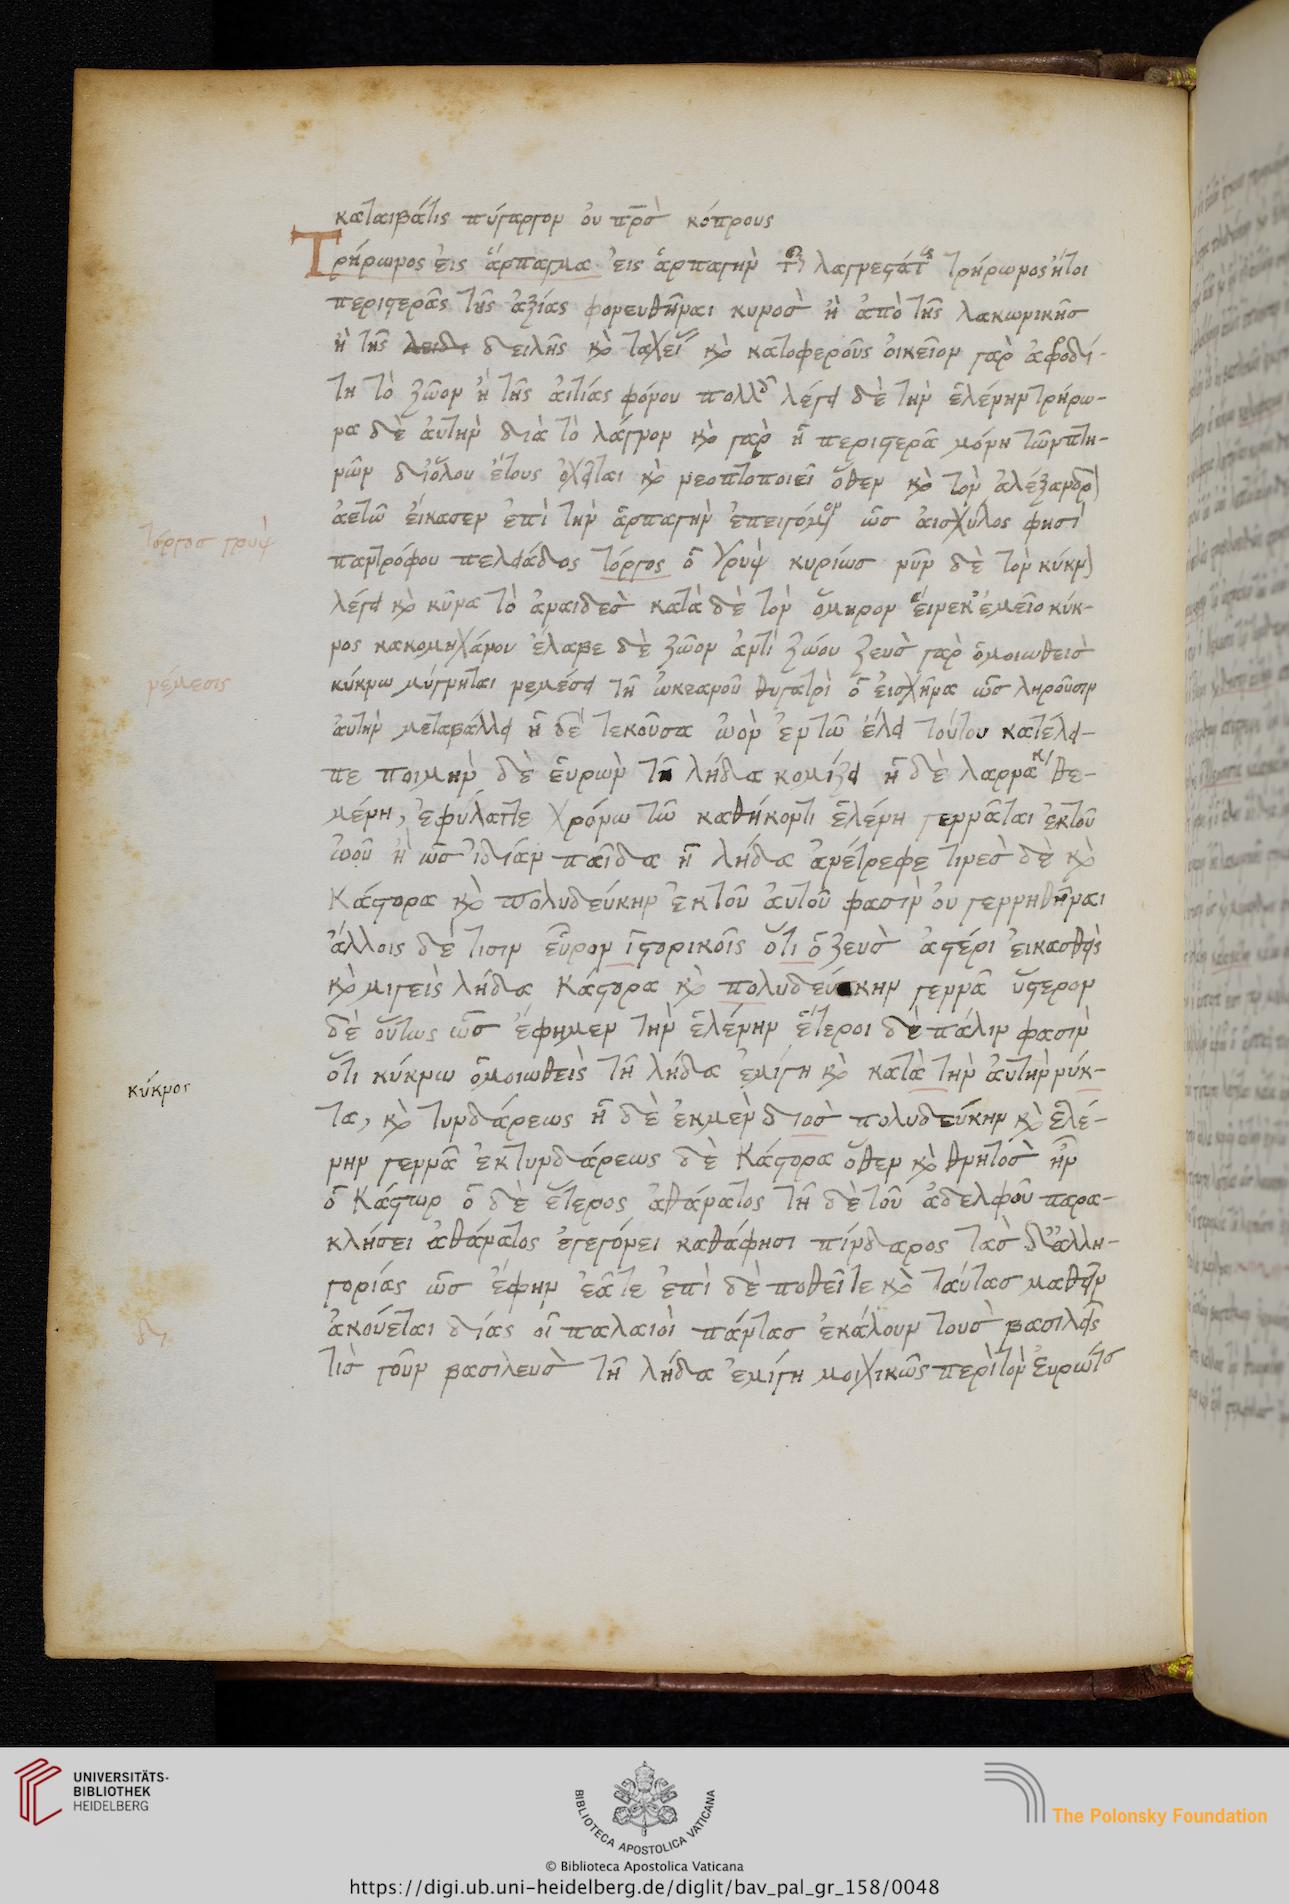 καταιβάτις πύγαργον ὀυ πρὸσ κόπρους
Τρήρωνος ἐις ἅρπαγμα ἐις ἁρπαγὴν τῆς λαγνεστάτης τρήρωνος ἤτοι
περιστερᾶς τῆς ἀξίας φονευθῆναι κυνοσ ἢ ἀπὸ τῆς λακωνικῆσ
ἢ τῆς δειλῆς κὸ ταχεί κὸ κατοφεροῦς ὀικεῖον γαρ ἀφροδί-
τη τὸ ζῶον ἢ τῆς ἀιτίας φόνου πολλῶν λέγει δὲ τὴν ἑλένην τρήρω-
να δὲ ἀυτὴν διὰ τὸ λάγνον κὸ γαρ ἡ περιστερᾶ μόνη τῶν πτη-
νῶν διόλου ἔτους ὀχεῖται κὸ νεοπτοποιεῖ ὅθεν κὸ τὸν ἀλέξανδρον
ἀετῶ ἐίκασεν ἐπὶ τὴν ἁρπαγὴν ἐπειγόμενον ὡσ ἀισχύλος φησὶ
παντρόφου πελειάδος τόργος ὁ γρυψ κυρίωσ νῦν δὲ τὸν κύκνον
λέγει κὸ κῦνα τὸ ἀναιδεσ κατὰ δὲ τὸν ὅμηρον ἕινεκ' ἐμεῖο κύκ-
νος κακομηχάνου ἔλαβε δὲ ζῶον ἀντὶ ζώου ζευσ γαρ ὁμοιωθεισ
κύκνω μύγνηται νεμέσει τῆ ὠκεανοῦ θυγατρὶ ὁ ἐισχῆνα ὡσ ληροῦσιν
ἀυτὴν μεταβάλλει ἡ δὲ τεκοῦσα ὠὸν ἐν τῶ ἕλει τούτου κατέλει-
πε ποιμὴν δὲ ἑυρὼν τῆ λήδα κομίζει ἡ δὲ λαρνακι θε-
μένη, ἐφύλαττε χρόνω τῶ καθήκοντι ἑλένη γεννᾶται ἐκ τοῦ
ὠοῦ ἣ ὡσ ἰδίαν παῖδα ἡ λήδα ἀνέτρεφε τινεσ δὲ κὸ
Κάστορα κὸ πολυδεύκην ἐκ τοῦ ἀυτοῦ φασὶν ὀυ γεννηθῆναι
ἄλλοις δέ τισιν εὗρον ἱστορικοῖς ὅτι ὁ ζευσ ἀστέρι ἐικασθεὶς
κὸ μιγεὶς λήδα Κάστορα κὸ πολυδεύκην γεννᾶ ὕστερον
δὲ οὕτως ὡσ ἔφημεν τὴν ἑλένην ἕτεροι δὲ πάλιν φασὶν
ὅτι κύκνω ὁμοιωθεὶς τῆ λήδα ἐμίγη κὸ κατὰ τὴν ἀυτὴν νύκ-
τα, κὸ τυνδάρεως ἡ δὲ ἐκ μὲν διοσ πολυδεύκην κὸ ἑλέ-
νην γεννᾶ ἐκ τυνδάρεως δὲ Κάστορα ὅθεν κὸ θνητὸσ ἦν
ὁ Κάστωρ ὁ δὲ ἕτερος ἀθάνατος τῆ δὲ τοῦ ἀδελφοῦ παρα-
κλήσει ἀθάνατος ἐγεγόνει καθάφησι πίνδαρος τὰσ δ' ἀλλη-
γορίας ὡσ ἔφην ἐᾶτε ἐπὶ δὲ ποθεῖτε κὸ ταύτασ μαθεῖν
ἀκούεται δίας οἱ παλαιοὶ πάντασ ἐκάλουν τουσ βασιλεῖς
τὶσ γοῦν βασιλευσ τῆ λήδα ἐμίγη μοιχικῶς περὶ τὸν ἐυρώταν
τόργοσ γρυψ
νέμεσις
κύκνος
UNIVERSITÄTS-
BIBLIOTHEK
HEIDELBERG
BIBLIOTECA APOSTOLICA VATICANA
The Polonsky Foundation
© Biblioteca Apostolica Vaticana
https://digi.ub.uni-heidelberg.de/diglit/bav_pal_gr_158/0048